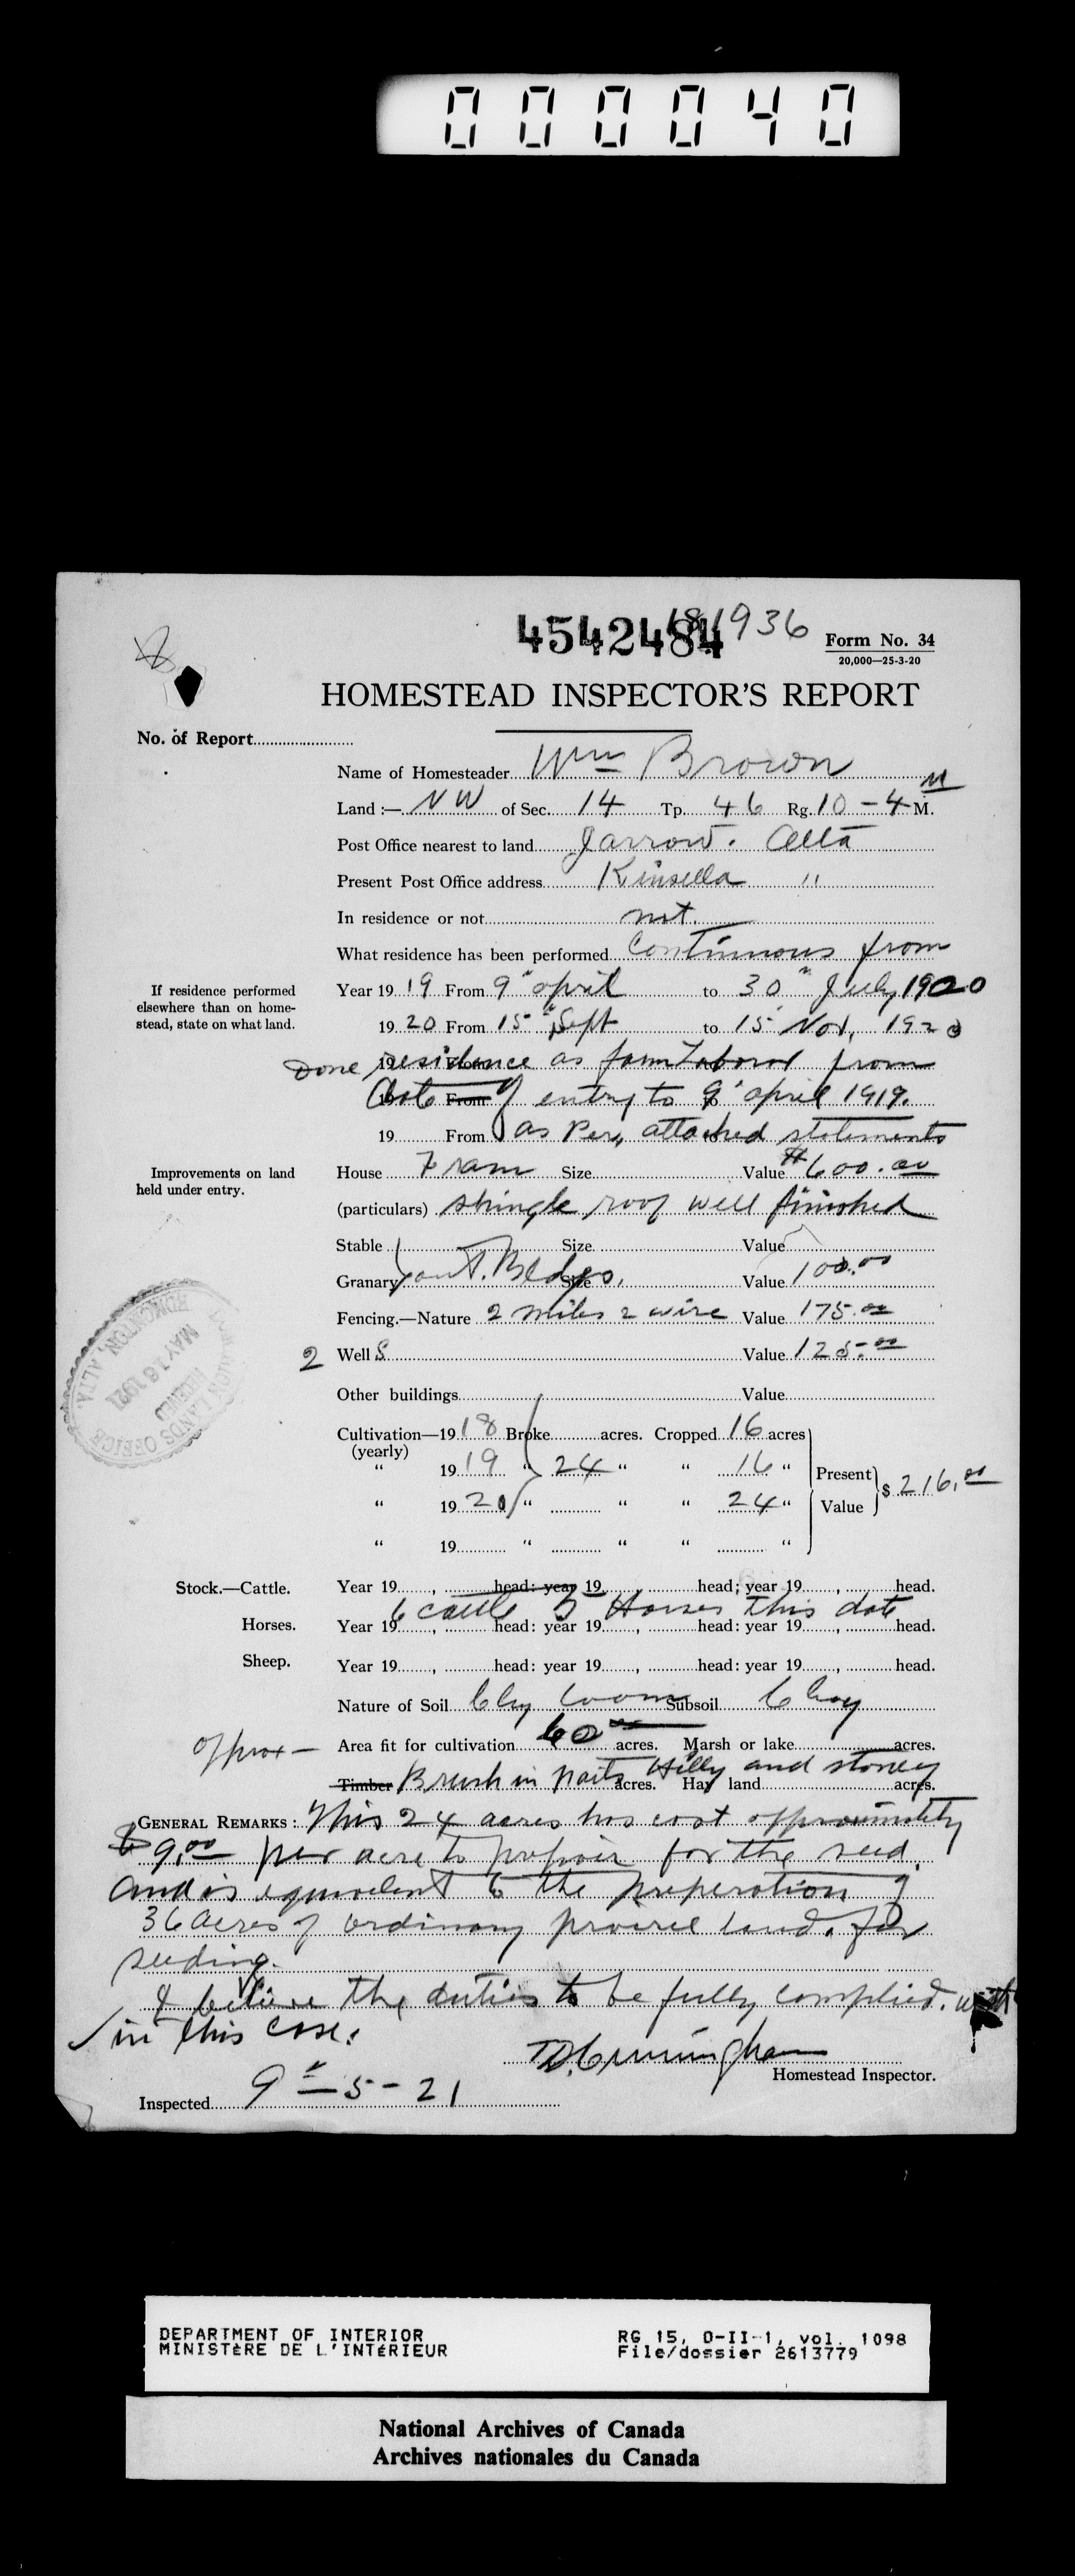 000040
4542484
181936
Form No. 34
20,000—25-3-20
HOMESTEAD INSPECTOR'S REPORT
No. of Report
Name of Homesteader Wm Brown
Land :— NW of Sec. 14 Tp. 46 Rg. 10 - 4 M.
Post Office nearest to land Jarrow. Alta
Present Post Office address Kinsella "
In residence or not not.
What residence has been performed Continuous from
If residence performed elsewhere than on home-stead, state on what land.
Year 19 19 From 9" april to 30" July 1920
19 20 From 15" Sept to 15" Nov. 1920
Done residence as farm Laborer from
19 From date of entry to 9" april 1919.
19 From as Per, attached statements
Improvements on land held under entry.
House Fram Size Value $600.00
(particulars) shingle roof well finished
Stable Size Value
Granary out. Bldgs. Size Value 100.00
Fencing.—Nature 2 miles 2 wire Value 175.00
2 Well s Value 125.00
Other buildings Value
Cultivation—19 18 Broke acres. Cropped 16 acres
(yearly)
" 19 19 " 24 " " 16 " Present
" 19 20 " " " 24 " Value $ 216.00
" 19 " " " "
DOMINION LANDS OFFICE
RECEIVED
MAY 16 1921
EDMONTON, ALTA.
Stock.—Cattle. Year 19 , head: year 19 , head; year 19 , head.
6 cattle 5 Horses this date
Horses. Year 19 , head: year 19 , head: year 19 , head.
Sheep. Year 19 , head: year 19 , head: year 19 , head.
Nature of Soil Clay loom Subsoil Clay
approx — Area fit for cultivation 60 acres. Marsh or lake acres.
Timber Brush in parts acres. Hilly and stoney Hay land acres.
GENERAL REMARKS: This 24 acres has cost approximately
$9.00 per acre to prepair for the seed.
and is equivalent to the preperation of
36 acres of ordinary prairie land. for
seeding.
I believe the duties to be fully complied. with
in this case.
Cunningham
Homestead Inspector.
Inspected 9-5-21
DEPARTMENT OF INTERIOR
MINISTÈRE DE L'INTÉRIEUR
RG 15, D-II-1, vol. 1098
File/dossier 2613779
National Archives of Canada
Archives nationales du Canada